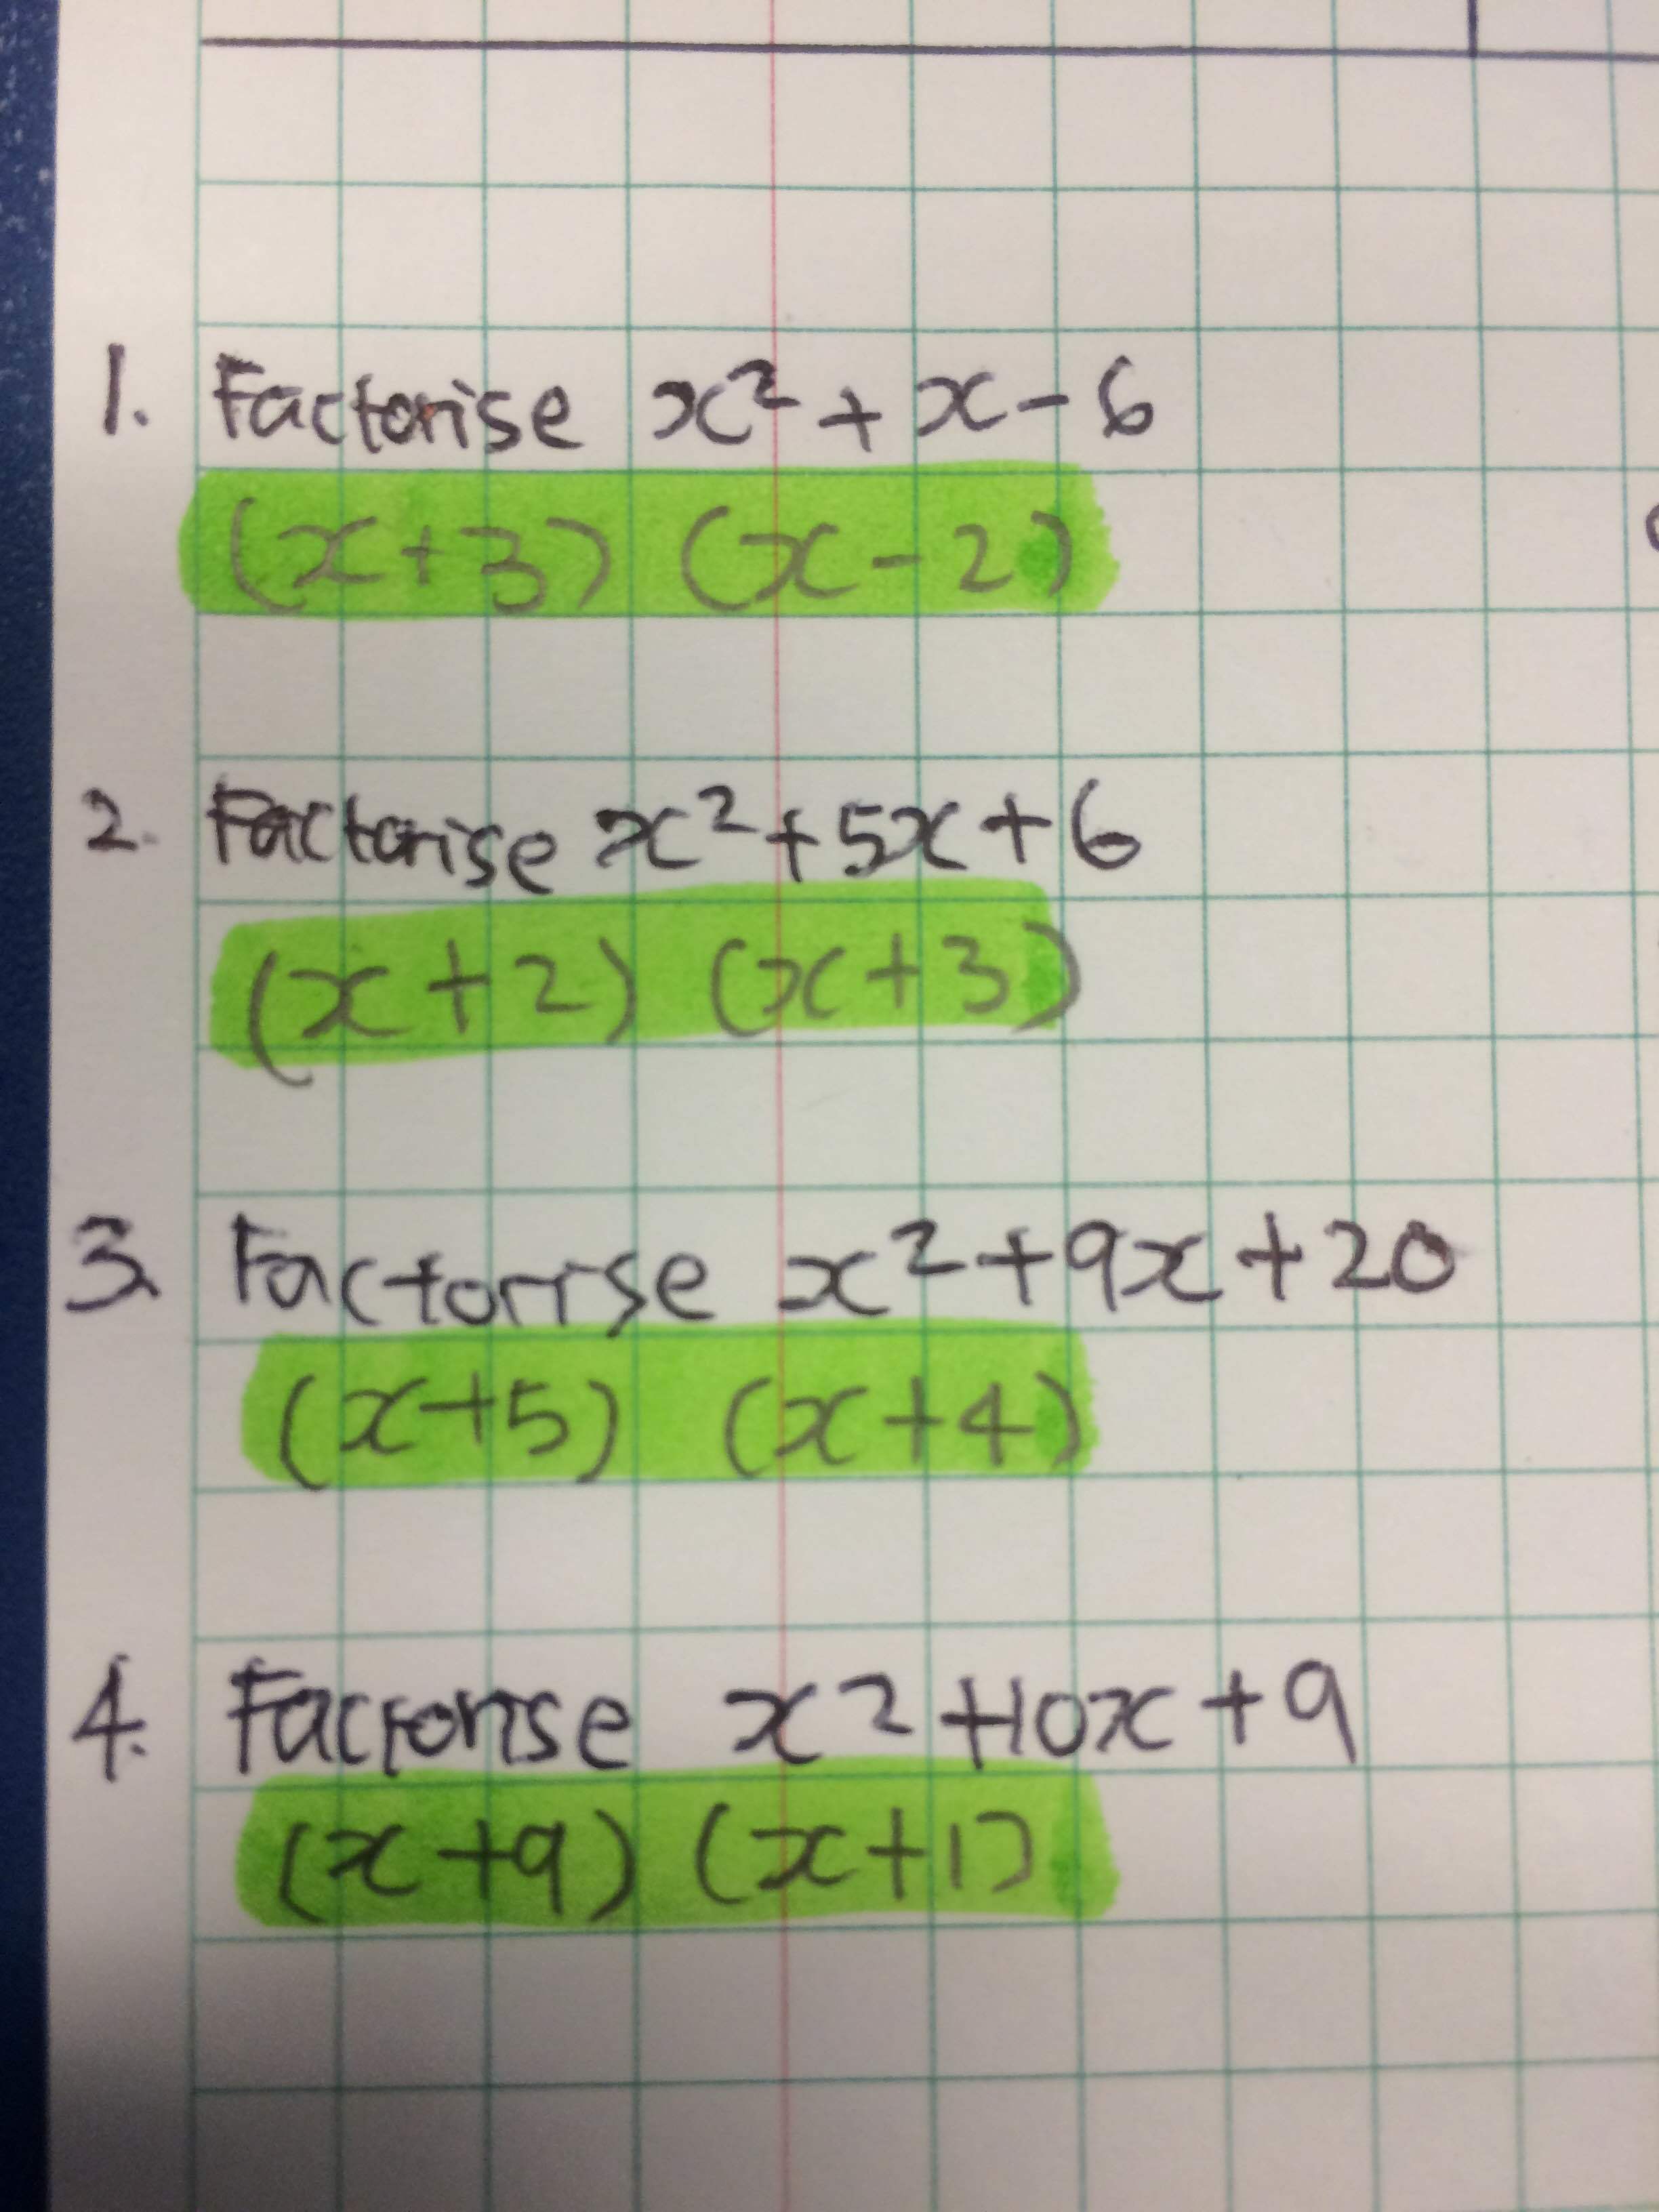 1. Factorise x² + x - 6
(x+3) (x-2)
2. Factorise x² + 5x + 6
(x+2) (x+3)
3. Factorise x² + 9x + 20
(x+5) (x+4)
4. Factorise x² + 10x + 9
(x+9) (x+1)